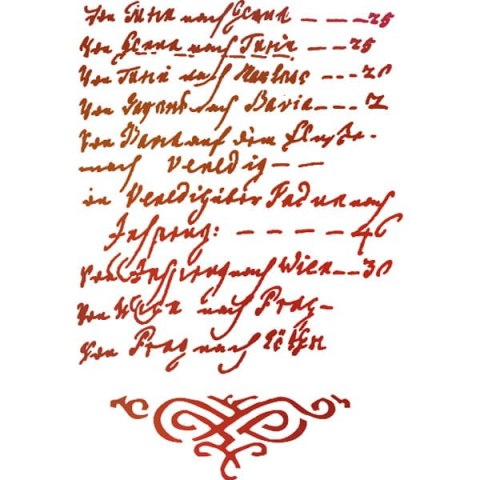 Von Turin nach Genua — — — 25
Von Genua nach Turin — — 25
Von Turin nach — — — 20
Von nach Pavia — — — 2
Von auf dem Flusse
nach Venedig — —
in Venedig über Padua nach
Insprug: — — — — 46
Von Insprug nach Wien — — 30
Von Wien nach Prag —
Von Prag nach Köthen